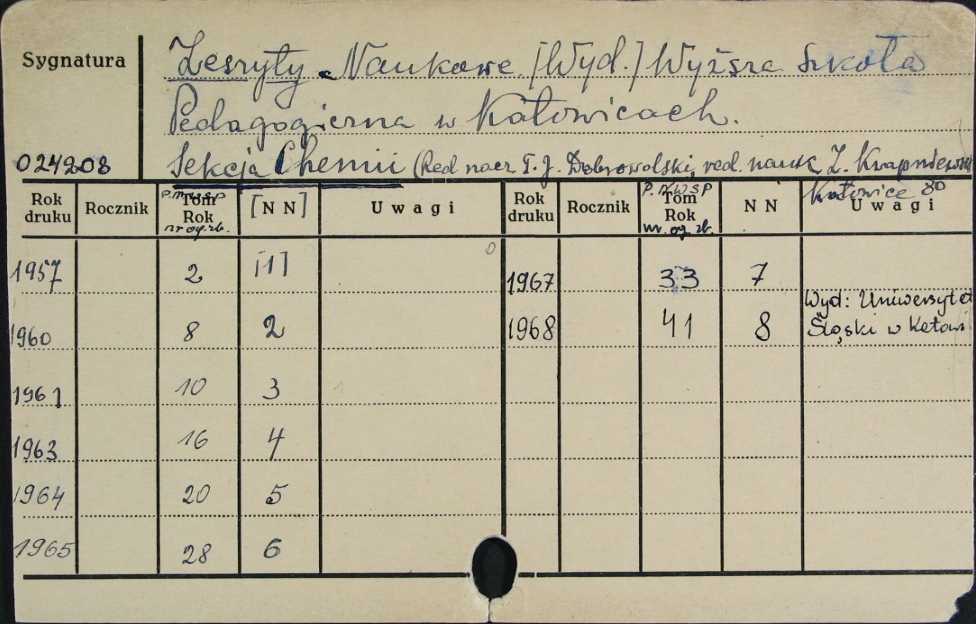 Sygnatura
Zeszyty Naukowe [Wyd.] Wyższa Szkoła
Pedagogiczna w Katowicach.
024208
Sekcja Chemii (Red nacz T. J. Dobrowolski, red. nauk Z.
Katowice 80
Rok druku Rocznik Tom Rok nr og. zb. [N N] Uwagi Rok druku Rocznik P.NWSP Tom Rok nr. og. zb. N N Uwagi
1957 2 [1] 1967 33 7
1960 8 2 1968 41 8 Wyd: Uniwersytet
Śląski w Katowi
1961 10 3
1963 16 4
1964 20 5
1965 28 6